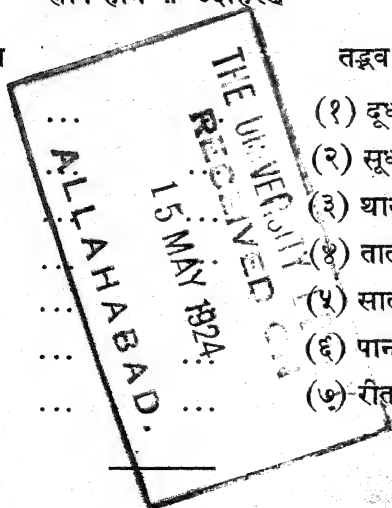 तद्भव
... (१) दूध
... (२) सूध
... ... (३) था
... ... (४) ताल
... ... (५) सात
... ... (६) पान
... ... (७) रीत
THE UNIVERSITY
RECEIVED ON
15 MAY 1924
ALLAHABAD.